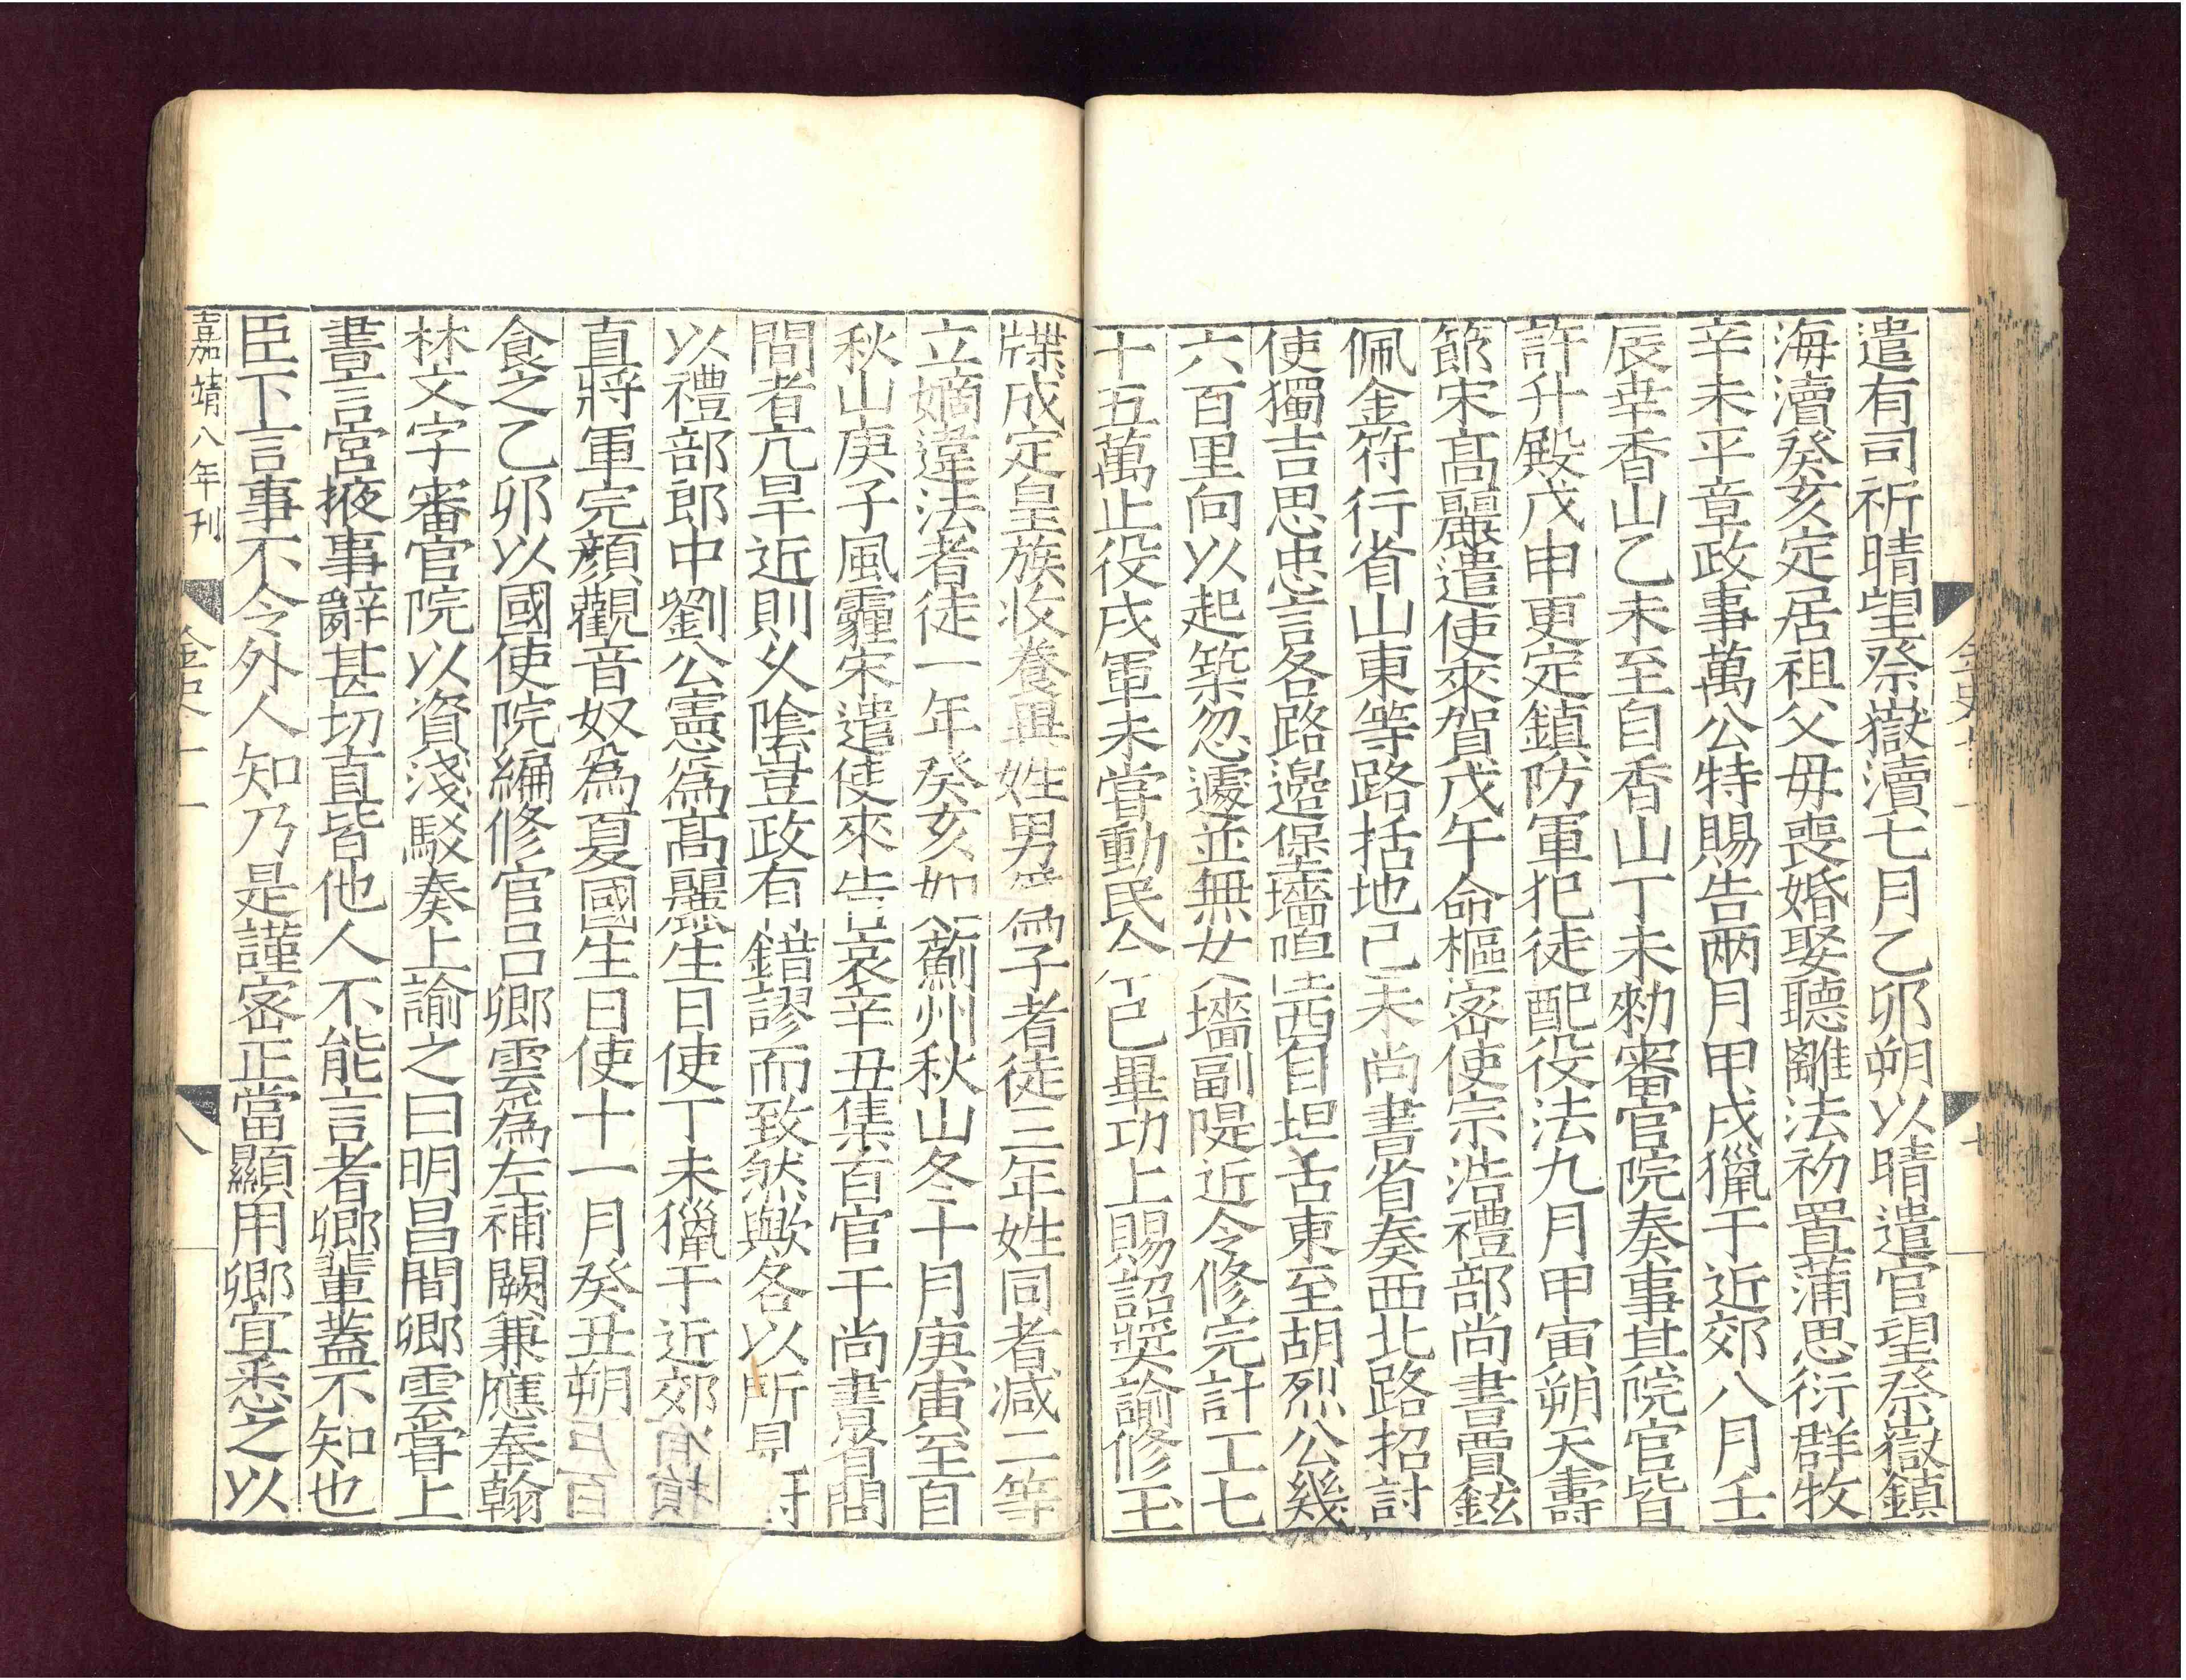 遣有司祈晴望祭嶽瀆七月乙卯朔以晴遣官望祭嶽鎮
海瀆癸亥定居祖父母喪婚娶聽離法初置蒲思衍群牧
辛未平章政事萬公特賜告兩月甲戌獵于近郊八月壬
辰幸香山乙未至自香山丁未勑審官院奏事其院官皆
許升殿戊申更定鎮防軍犯徒配役法九月甲寅朔天壽
節宋髙麗遣使來賀戊午命樞密使宗浩禮部尚書賈鉉
佩金符行省山東等路括地己未尚書省奏西北路招討
使獨吉思忠言各路邊堡墻隍西自坦舌東至胡烈公幾
六百里向以起築忽遽並無女墻副隄近令修完計工七
十五萬止役戍軍未嘗動民今已畢功上賜詔奬諭修玉
牒成定皇族收養異姓男爲子者徒三年姓同者减二等
立嫡違法者徒一年癸亥如薊州秋山冬十月庚寅至自
秋山庚子風霾宋遣使來告哀辛丑集百官于尚書省問
間者亢旱近則久陰豈政有錯謬而致然歟各以所見對
以禮部郎中劉公憲爲髙麗生日使丁未獵于近郊
直將軍完顔觀音奴爲夏國生日使十一月癸丑朔
食之乙卯以國使院編修官吕卿雲爲左補闕兼應奉翰
林文字審官院以資淺駁奏上諭之曰明昌間卿雲嘗上
書言宮掖事辭甚切直皆他人不能言者卿輩蓋不知也
臣下言事不令外人知乃是謹密正當顯用卿宜悉之以
嘉靖八年刊 金史十一 八